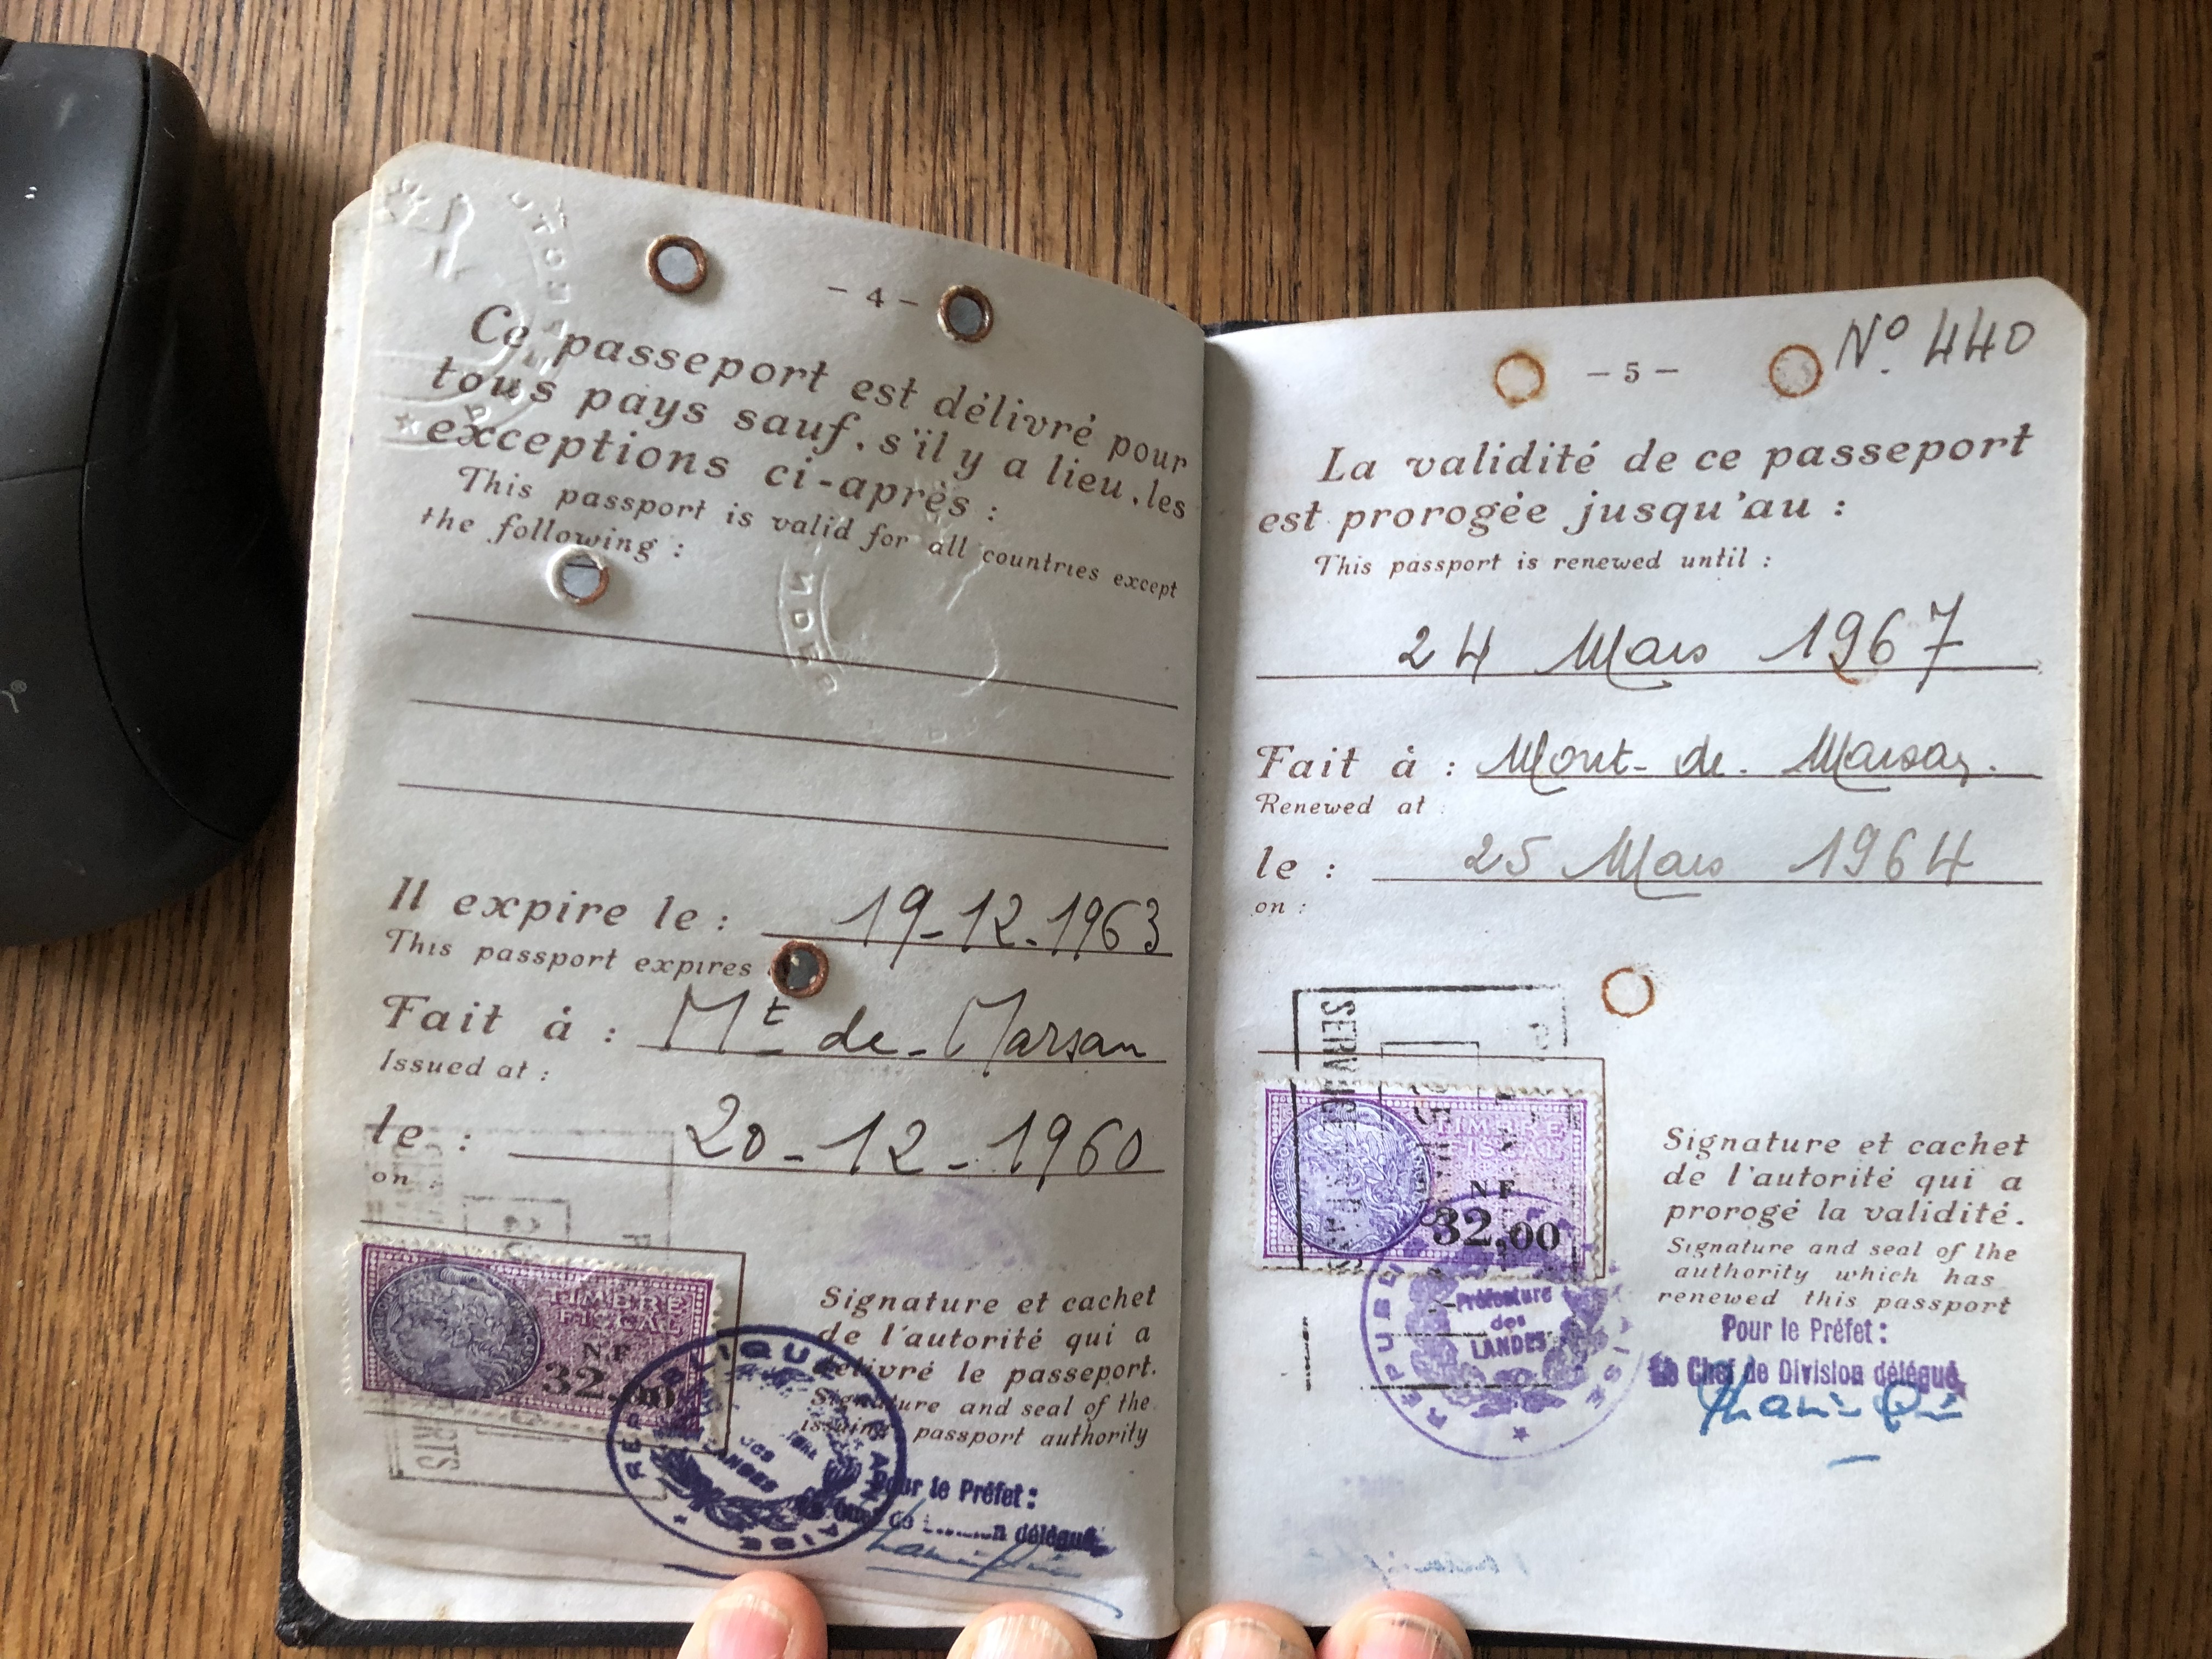 - 4 -
Ce passeport est délivré pour
tous pays sauf, s'il y a lieu, les
exceptions ci-après :
This passport is valid for all countries except
the following :
Il expire le : 19-12-1963
This passport expires
Fait à : Mt de-Marsan
Issued at :
le : 20-12-1960
on :
TIMBRE
FISCAL
NF
32,00
Signature et cachet
de l'autorité qui a
délivré le passeport.
Signature and seal of the
issuing passport authority
LANDES
Pour le Préfet :
délégué
- 5 -
N° 440
La validité de ce passeport
est prorogée jusqu'au :
This passport is renewed until :
24 Mars 1967
Fait à : Mont-de-Marsan.
Renewed at :
le : 25 Mars 1964
on :
SERVICE
TIMBRE
FISCAL
NF
32,00
Préfecture
des
LANDES
Signature et cachet
de l'autorité qui a
prorogé la validité.
Signature and seal of the
authority which has
renewed this passport
Pour le Préfet :
Le Chef de Division délégué,